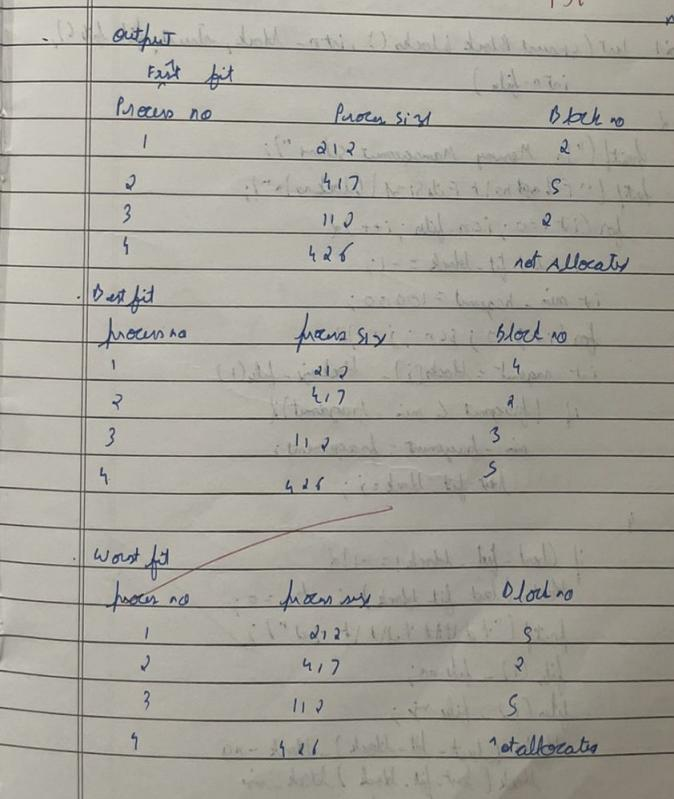 Output
First fit
Process no Process size Block no
1 212 2
2 417 5
3 112 2
4 426 not Allocated
Best fit
process no process size Block no
1 212 4
2 417 2
3 112 3
4 426 5
Worst fit
process no process size Block no
1 212 5
2 417 2
3 112 5
4 426 not allocated